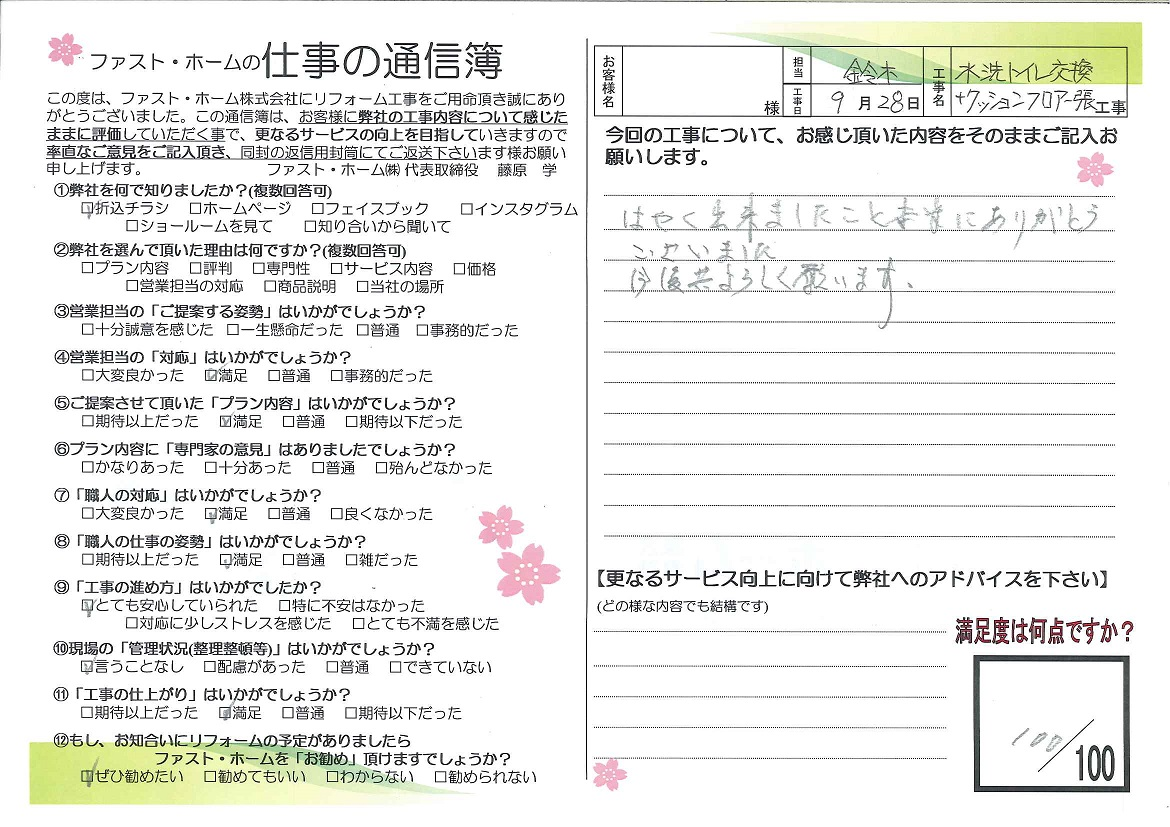 ファスト・ホームの仕事の通信簿
この度は、ファスト・ホーム株式会社にリフォーム工事をご用命頂き誠にあり
がとうございました。この通信簿は、お客様に弊社の工事内容について感じた
ままに評価していただく事で、更なるサービスの向上を目指していきますので
率直なご意見をご記入頂き、同封の返信用封筒にてご返送下さいます様お願い
申し上げます。 ファスト・ホーム㈱ 代表取締役 藤原 学
①弊社を何で知りましたか？(複数回答可)
☑折込チラシ □ホームページ □フェイスブック □インスタグラム
□ショールームを見て □知り合いから聞いて
②弊社を選んで頂いた理由は何ですか？(複数回答可)
□プラン内容 □評判 □専門性 □サービス内容 □価格
□営業担当の対応 □商品説明 □当社の場所
③営業担当の「ご提案する姿勢」はいかがでしょうか？
□十分誠意を感じた □一生懸命だった □普通 □事務的だった
④営業担当の「対応」はいかがでしょうか？
□大変良かった ☑満足 □普通 □事務的だった
⑤ご提案させて頂いた「プラン内容」はいかがでしょうか？
□期待以上だった ☑満足 □普通 □期待以下だった
⑥プラン内容に「専門家の意見」はありましたでしょうか？
□かなりあった □十分あった □普通 □殆んどなかった
⑦「職人の対応」はいかがでしょうか？
□大変良かった ☑満足 □普通 □良くなかった
⑧「職人の仕事の姿勢」はいかがでしょうか？
□期待以上だった ☑満足 □普通 □雑だった
⑨「工事の進め方」はいかがでしたか？
☑とても安心していられた □特に不安はなかった
□対応に少しストレスを感じた □とても不満を感じた
⑩現場の「管理状況(整理整頓等)」はいかがでしょうか？
☑言うことなし □配慮があった □普通 □できていない
⑪「工事の仕上がり」はいかがでしょうか？
□期待以上だった ☑満足 □普通 □期待以下だった
⑫もし、お知合いにリフォームの予定がありましたら
ファスト・ホームを「お勧め」頂けますでしょうか？
☑ぜひ勧めたい □勧めてもいい □わからない □勧められない
お客様名 様 担当 鈴木 工事名 水洗トイレ交換
工事日 9月28日 +クッションフロアー張工事
今回の工事について、お感じ頂いた内容をそのままご記入お
願いします。
はやく出来ましたこと本当にありがとう
ございました
今後共よろしく願います。
【更なるサービス向上に向けて弊社へのアドバイスを下さい】
(どの様な内容でも結構です)
満足度は何点ですか？
100/100